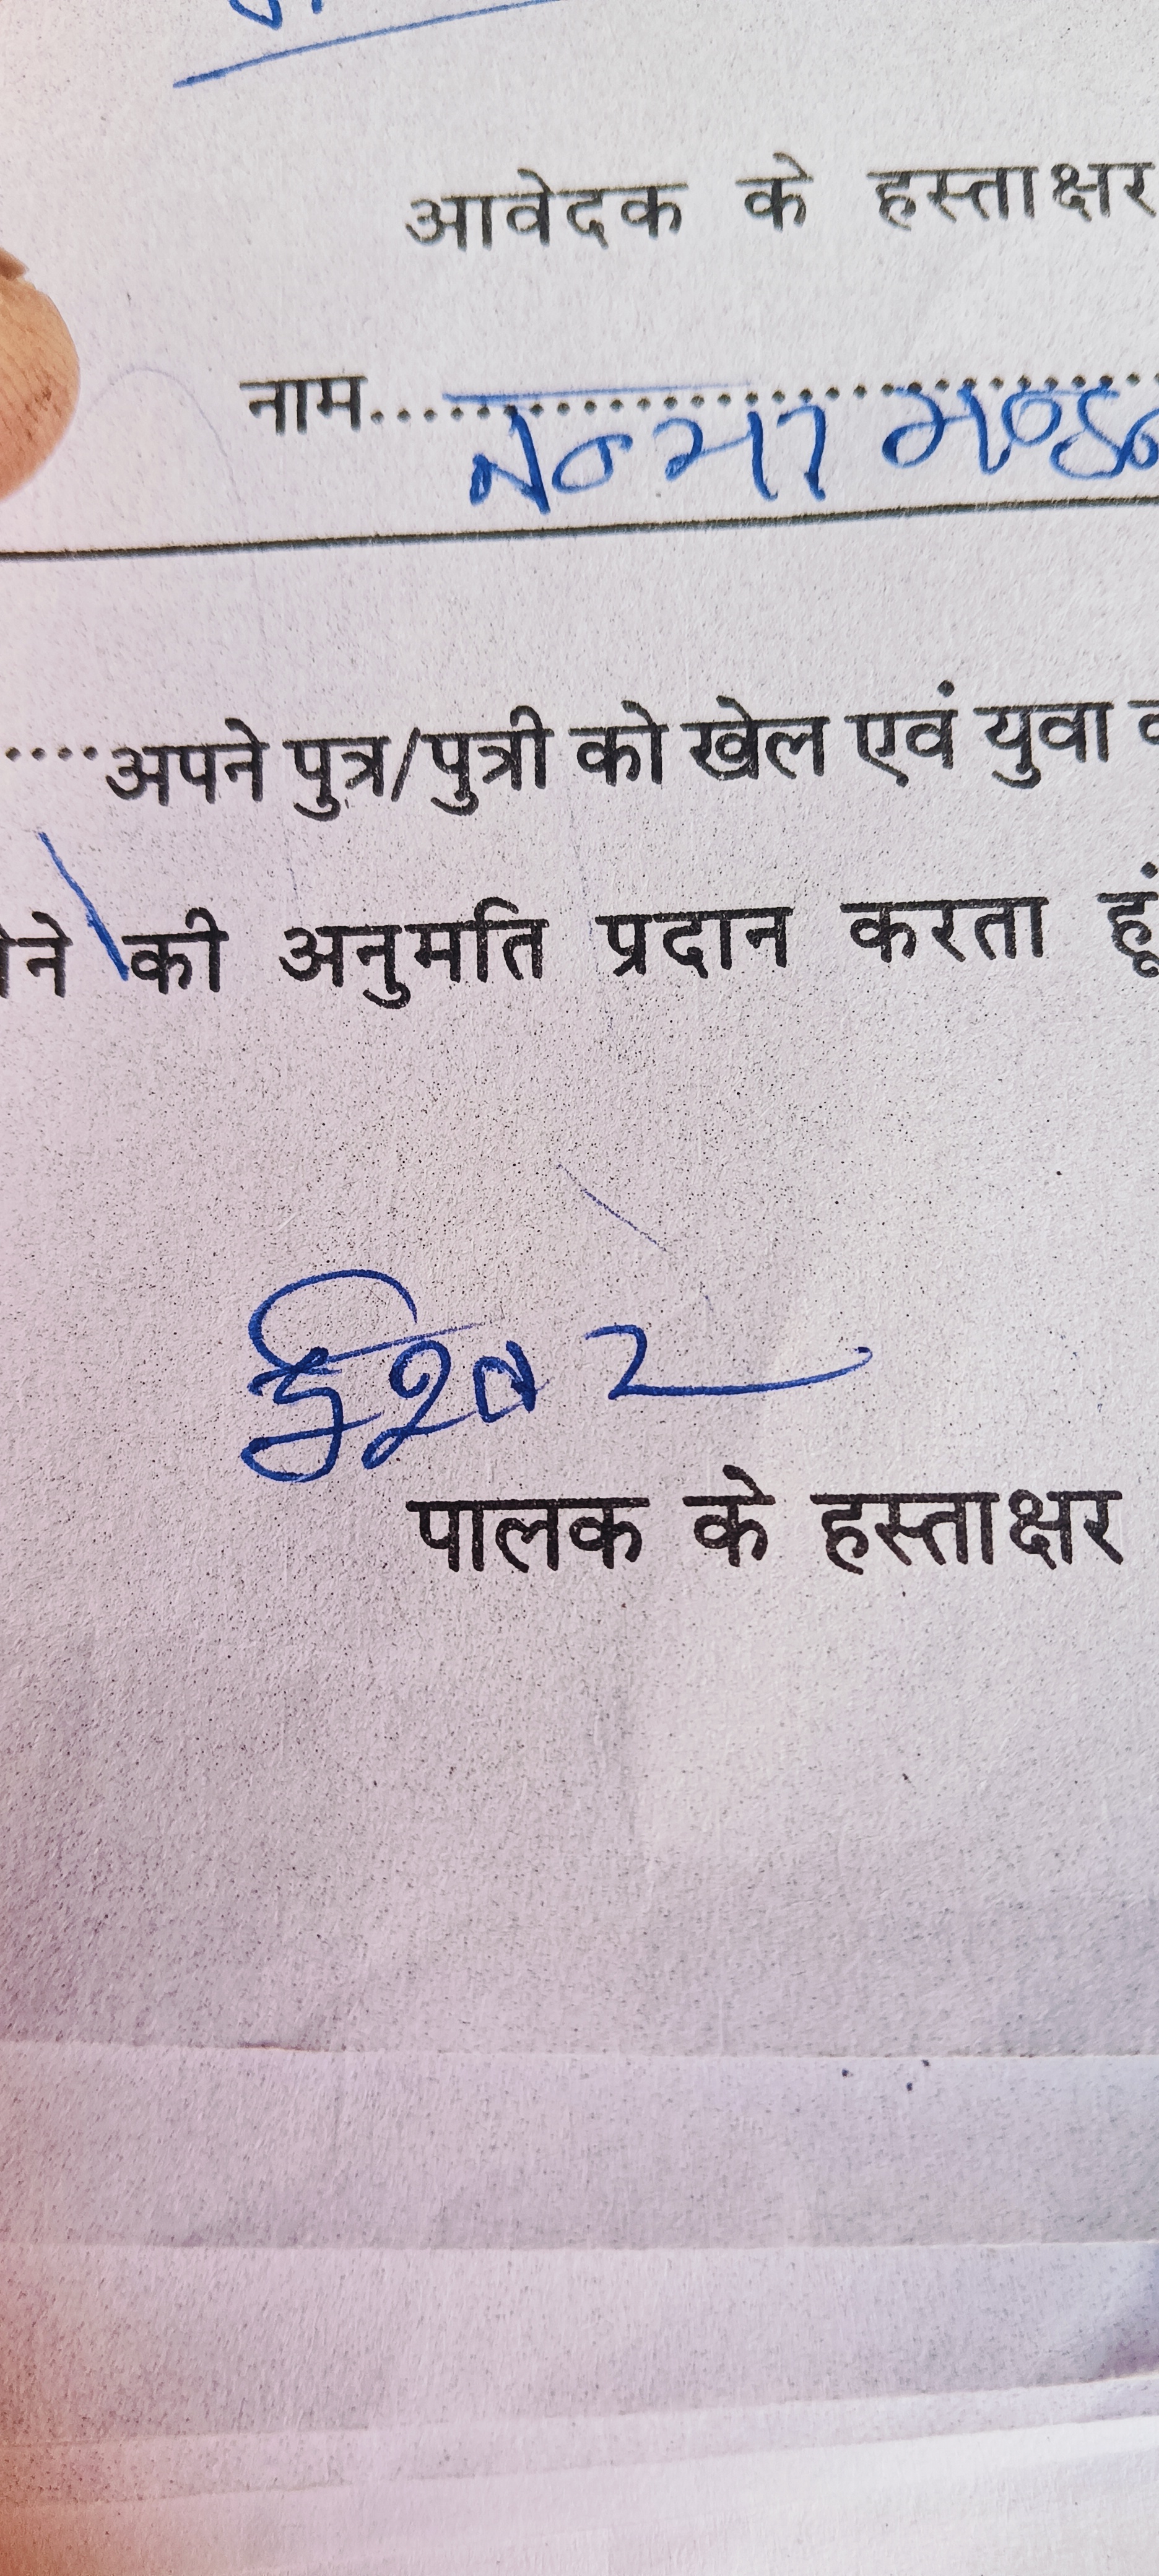 आवेदक के हस्ताक्षर
नाम....................
....अपने पुत्र/पुत्री को खेल एवं युवा
की अनुमति प्रदान करता हूं
ईश्वर
पालक के हस्ताक्षर